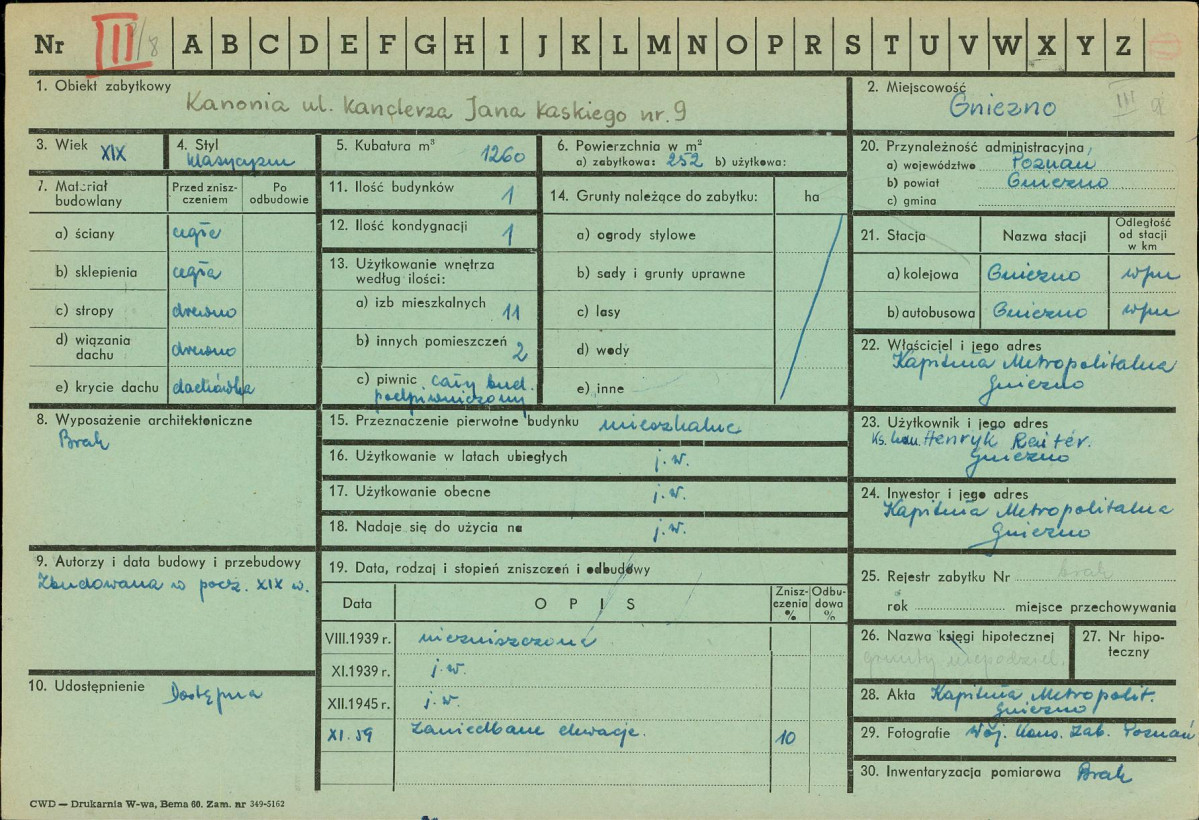 Nr III /8 A B C D E F G H I J K L M N O P R S T U V W X Y Z
1. Obiekt zabytkowy
Kanonia ul. Kanclerza Jana Łaskiego nr. 9
2. Miejscowość
Gniezno III
3. Wiek XIX
4. Styl
klasycyzm
5. Kubatura m³ 1260
6. Powierzchnia w m²
a) zabytkowa: 252 b) użytkowa:
20. Przynależność administracyjna
a) województwo Poznań
b) powiat Gniezno
c) gmina
7. Materiał budowlany
Przed znisz-
czeniem
Po
odbudowie
a) ściany cegła
b) sklepienia cegła
c) stropy drewno
d) wiązania
dachu drewno
e) krycie dachu dachówka
11. Ilość budynków 1
12. Ilość kondygnacji 1
13. Użytkowanie wnętrza
według ilości:
a) izb mieszkalnych 11
b) innych pomieszczeń 2
c) piwnic cały bud.
podpiwniczony
14. Grunty należące do zabytku: ha
a) ogrody stylowe
b) sady i grunty uprawne
c) lasy
d) wody
e) inne
21. Stacja Nazwa stacji
Odległość
od stacji
w km
a) kolejowa Gniezno
b) autobusowa Gniezno
22. Właściciel i jego adres
Kapituła Metropolitalna
Gniezno
8. Wyposażenie architektoniczne
Brak
15. Przeznaczenie pierwotne budynku mieszkalne
16. Użytkowanie w latach ubiegłych j.w.
17. Użytkowanie obecne j.w.
18. Nadaje się do użycia na j.w.
23. Użytkownik i jego adres
Ks. kan. Henryk Reiter.
Gniezno
24. Inwestor i jego adres
Kapituła Metropolitalna
Gniezno
9. Autorzy i data budowy i przebudowy
Zbudowana w pocz. XIX w.
19. Data, rodzaj i stopień zniszczeń i odbudowy
Data OPIS
Znisz-
czenia
%
Odbu-
dowa
%
VIII.1939 r. niezniszczona
XI.1939 r. j.w.
XII.1945 r. j.w.
XI.59 Zaniedbane elewacje. 10
25. Rejestr zabytku Nr brak
rok miejsce przechowywania
26. Nazwa księgi hipotecznej
grunty niepodziel.
27. Nr hipo-
teczny
10. Udostępnienie Dostępna
28. Akta Kapituła Metropolit.
Gniezno
29. Fotografie Woj. Kons. Zab. Poznań
30. Inwentaryzacja pomiarowa Brak
CWD — Drukarnia W-wa, Bema 60. Zam. nr 349-5162